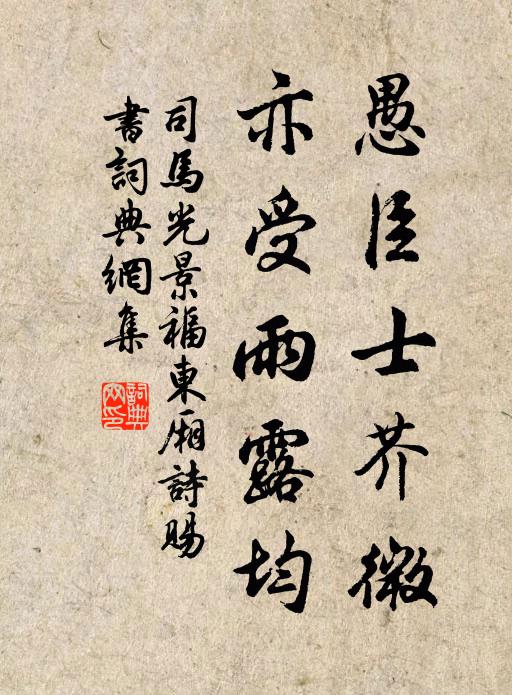 愚臣士芥微
亦受雨露均
司馬光景福東廂詩賜
書詞典網集
詞典
网印